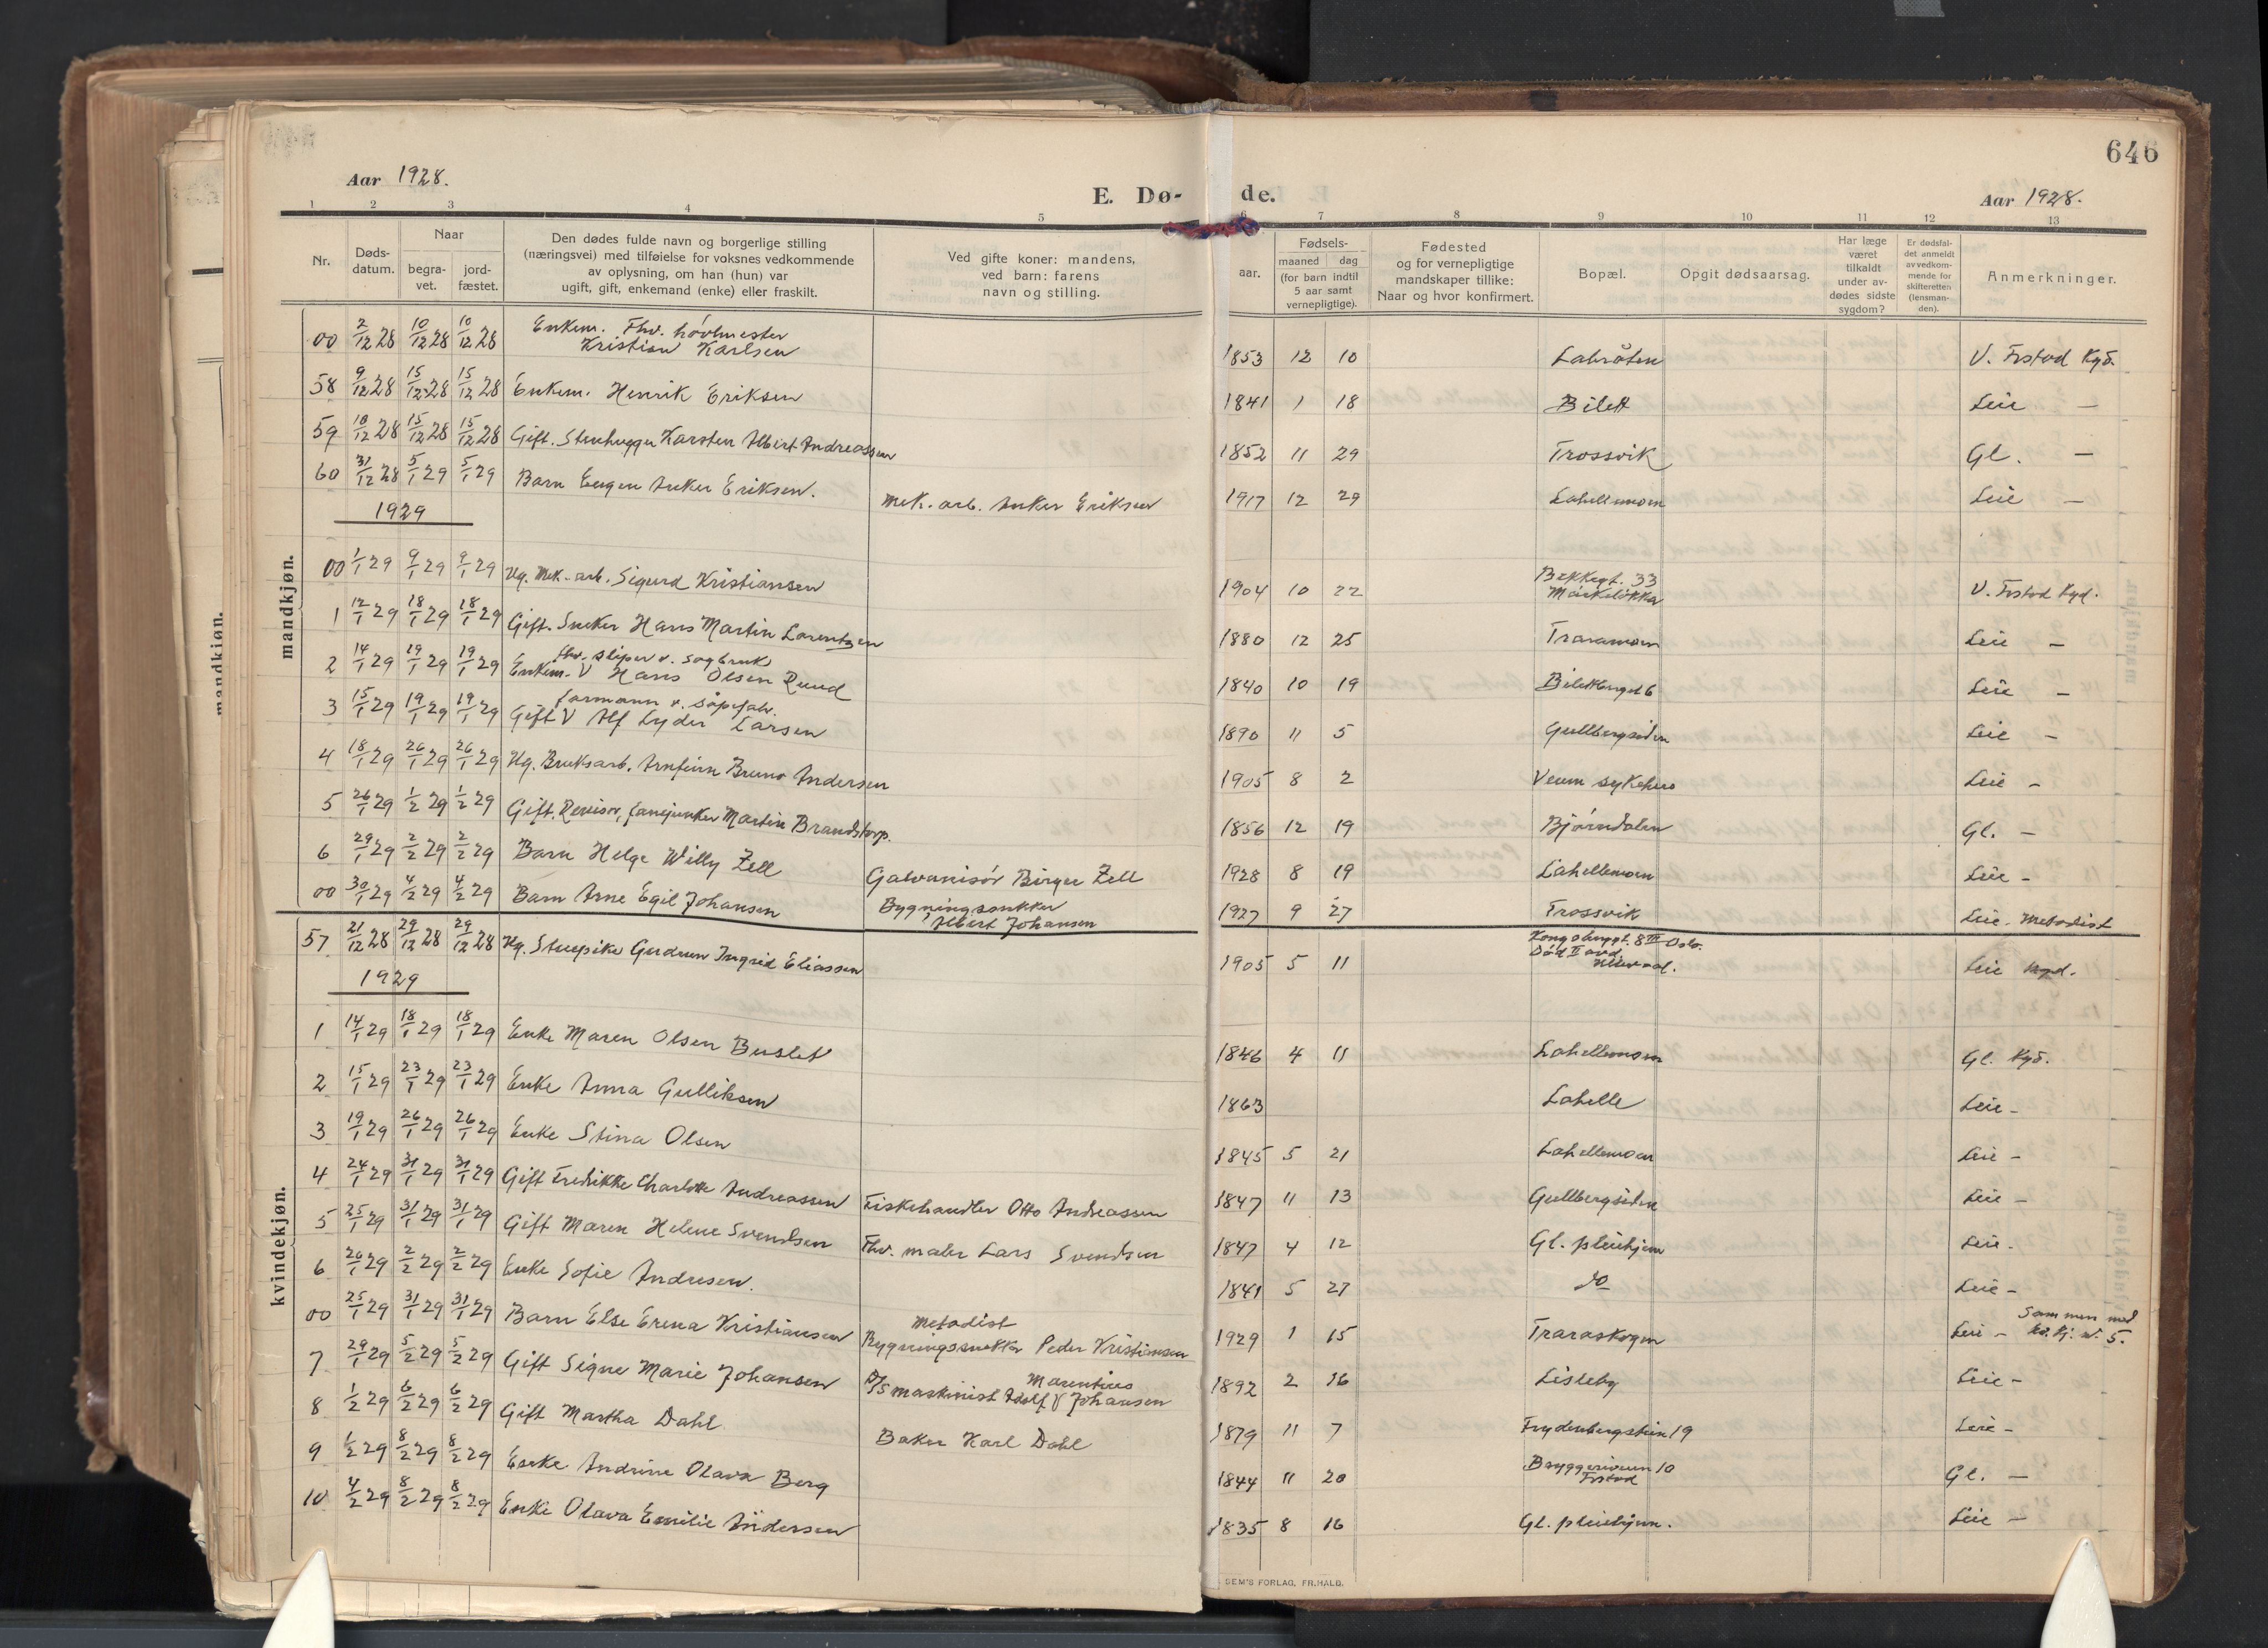 646
Aar 1928.
E. Dø- de.
Aar 1928.
1 2 3 4 5 6 7 8 9 10 11 12 13
Nr.
Døds-
datum.
Naar
begra-
vet.
jord-
fæstet.
Den dødes fulde navn og borgerlige stilling
(næringsvei) med tilføielse for voksnes vedkommende
av oplysning, om han (hun) var
ugift, gift, enkemand (enke) eller fraskilt.
Ved gifte koner: mandens,
ved barn: farens
navn og stilling.
aar.
Fødsels-
maaned dag
(for barn indtil
5 aar samt
vernepligtige).
Fødested
og for vernepligtige
mandskaper tillike:
Naar og hvor konfirmert.
Bopæl.
Opgit dødsaarsag.
Har læge
været
tilkaldt
under av-
dødes sidste
sygdom?
Er dødsfal-
det anmeldt
av vedkom-
mende for
skifteretten
(lensman-
den).
Anmerkninger.
mandkjøn.
mandkjøn.
00 2/12 28 10/12 28 10/12 28 Enkem. Fhv. hovmester
Kristian Karlsen 1853 12 10 Labråten V. Frstad Kgd.
58 9/12 28 15/12 28 15/12 28 Enkem. Henrik Eriksen 1841 1 18 Bilett Leie —
59 10/12 28 15/12 28 15/12 28 Gift. Stenhugger Karsten Albert Andreassen 1852 11 29 Trossvik Gl. —
60 31/12 28 5/1 29 5/1 29 Barn Eugen Anker Eriksen. Mek. arb. Anker Eriksen 1917 12 29 Lahellemoen Leie —
1929
00 1/1 29 9/1 29 9/1 29 Ug. Mek. arb. Sigurd Kristiansen 1904 10 22 Bekkegt. 33
V. Frstad Kgd.
1 12/1 29 18/1 29 18/1 29 Gift. Snekker Hans Martin Lorentzen 1880 12 25 Traramoen Leie —
2 14/1 29 19/1 29 19/1 29 fhv. sliper v. sagbruk
Enkem. V Hans Olsen Ruud 1840 10 19 Bilettberget 6 Leie —
3 15/1 29 19/1 29 19/1 29 formann v. såpefabr.
Gift V Alf Lyder Larsen 1890 11 5 Gullbergsiden Leie —
4 18/1 29 26/1 29 26/1 29 Ug. Bruksarb. Arnfinn Bruno Andersen 1905 8 2 Veum sykehus Leie —
5 26/1 29 1/2 29 1/2 29 Gift. Revisor, fanejunker Martin Brandstorp. 1856 12 19 Bjørndalen Gl. —
6 29/1 29 2/2 29 2/2 29 Barn Helge Willy Zell Galvanisør Birger Zell 1928 8 19 Lahellemoen Leie —
00 30/1 29 4/2 29 4/2 29 Barn Arne Egil Johansen Bygningssnekker
Albert Johansen 1927 9 27 Trossvik Leie. Metodist
kvindekjøn.
57 21/12 28 29/12 28 29/12 28 Ug. Stuepike Gudrun Ingrid Eliassen 1905 5 11 Kongsberggt. 8 III Oslo.
Død II avd.
Ullevaal. Leie Kgd.
1929
1 14/1 29 18/1 29 18/1 29 Enke Maren Olsen Buslet 1846 4 11 Lahellemoen Gl. Kgd.
2 15/1 29 23/1 29 23/1 29 Enke Anna Gulliksen 1863 Lahelle Leie —
3 19/1 29 26/1 29 26/1 29 Enke Stina Olsen 1845 5 21 Lahellemoen Leie —
4 24/1 29 31/1 29 31/1 29 Gift Fredrikke Charlotte Andreassen Fiskehandler Otto Andreassen 1847 11 13 Gullbergsiden Leie —
5 25/1 29 31/1 29 31/1 29 Gift Maren Helene Svendsen Fhv. maler Lars Svendsen 1847 4 12 Gl. pleiehjem Leie.
6 26/1 29 2/2 29 2/2 29 Enke Sofie Andresen. 1841 5 27 do Leie —
00 25/1 29 31/1 29 31/1 29 Barn Else Erena Kristiansen Metodist
Bygningssnekker Peder Kristiansen 1929 1 15 Traraskogen Leie — Sammen med
kv.kj. nr. 5.
7 29/1 29 5/2 29 5/2 29 Gift Signe Marie Johansen D/S maskinist Adolf V Marentius Johansen 1892 2 16 Lisleby Leie —
8 1/2 29 6/2 29 6/2 29 Gift Martha Dahl Baker Karl Dahl 1879 11 7 Frydenbergstien 19 Leie —
9 1/2 29 8/2 29 8/2 29 Enke Andrine Olava Berg 1844 11 20 Bryggeriveien 10
Frstad Gl. —
10 4/2 29 8/2 29 8/2 29 Enke Olava Emilie Andersen 1835 8 16 Gl. pleiehjem. Leie —
SEM'S FORLAG, FR.HALD.